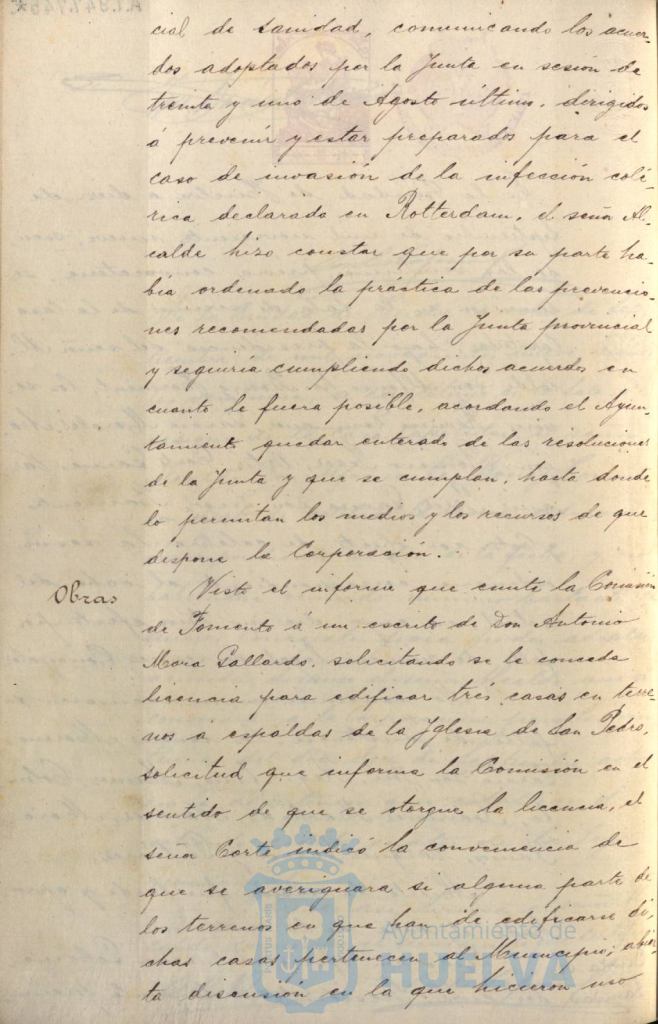 cial de sanidad, comunicando los acuer-
dos adoptados por la Junta en sesión de
treinta y uno de Agosto último, dirigidos
á prevenir y estar preparados para el
caso de invasión de la infección colé-
rica declarada en Rotterdam, el señor Al-
calde hizo constar que por su parte ha-
bía ordenado la práctica de las prevencio-
nes recomendadas por la Junta provincial
y seguiría cumpliendo dichos acuerdos en
cuanto le fuera posible, acordando el Ayun-
tamiento quedar enterado de las resoluciones
de la Junta y que se cumplan, hasta donde
lo permitan los medios y los recursos de que
dispone la Corporación.
Obras
Visto el informe que emite la Comisión
de Fomento á un escrito de Don Antonio
Mora Gallardo, solicitando se le conceda
licencia para edificar tres casas en terre-
nos á espaldas de la Iglesia de San Pedro,
solicitud que informa la Comisión en el
sentido de que se otorgue la licencia, el
señor Corte indicó la conveniencia de
que se averiguara si alguna parte de
los terrenos en que han de edificarse di-
chas casas pertenecen al Municipio; abier-
ta discusión en la que hicieron uso
Ayuntamiento de
HUELVA